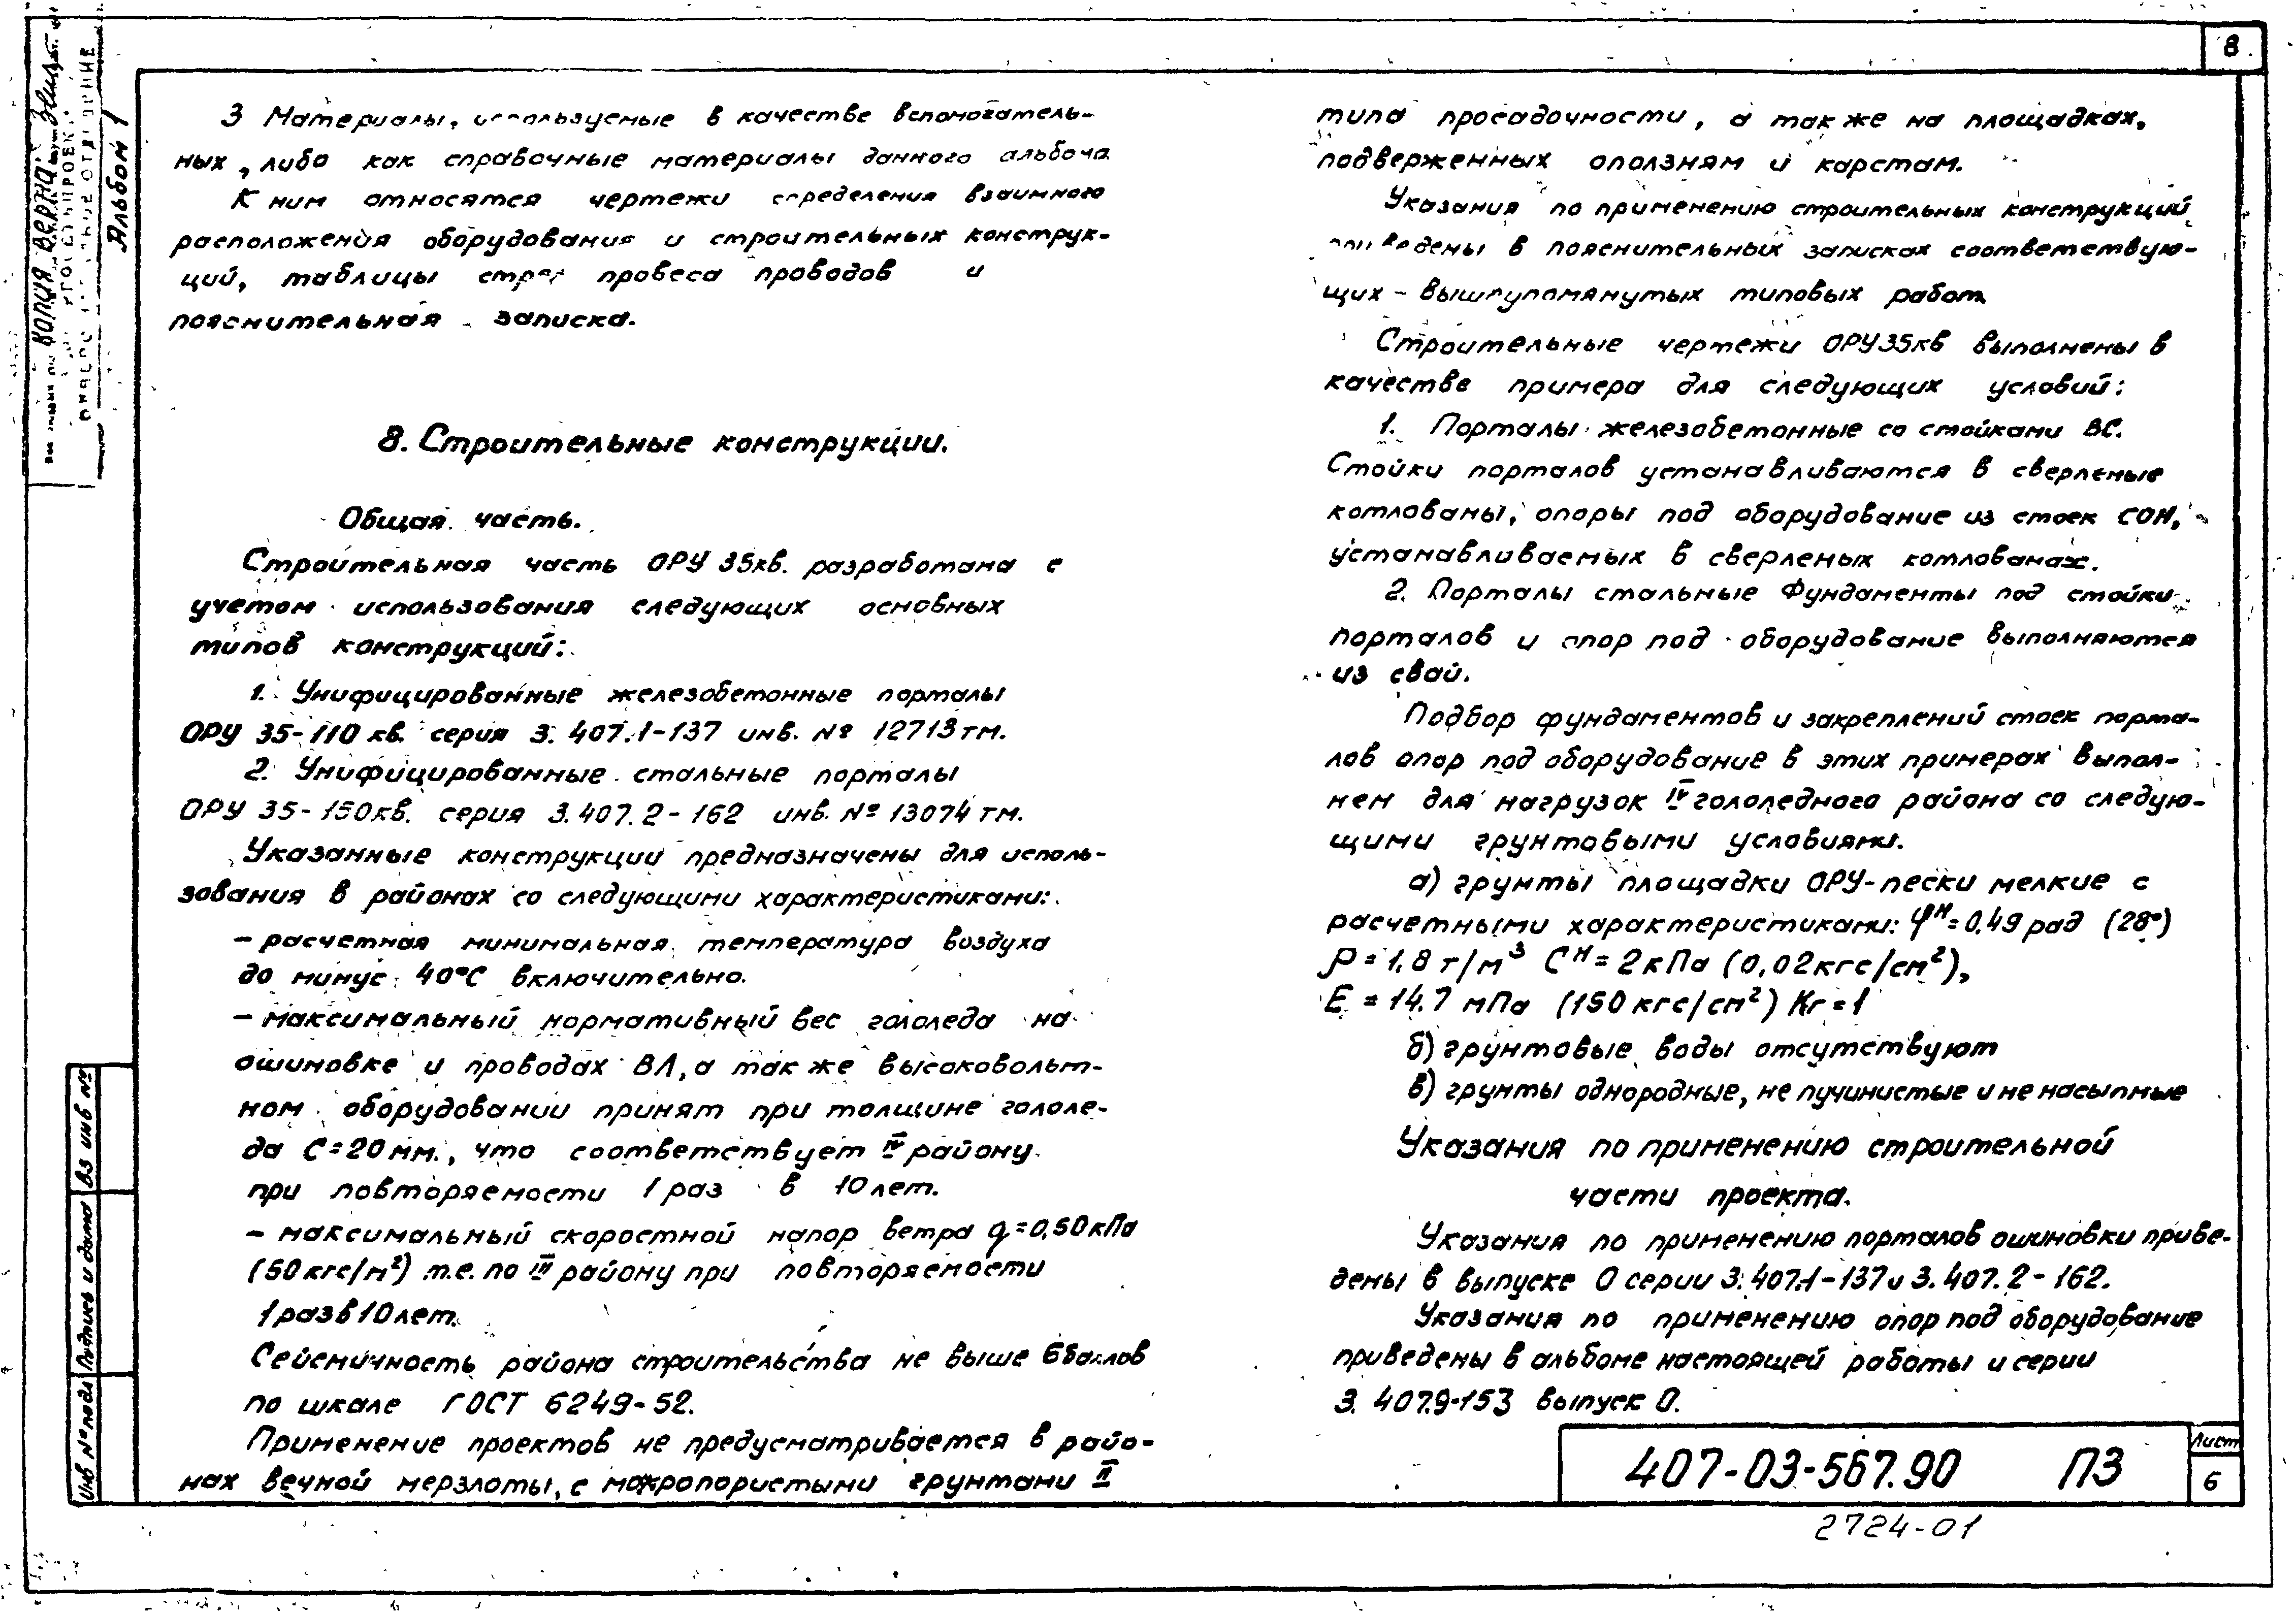 8
Альбом 1
Копия верна:
3 Материалы, используемые в качестве вспомогатель-
ных, либо как справочные материалы данного альбома
К ним относятся чертежи определения взаимного
расположения оборудования и строительных конструк-
ций, таблицы стрел провеса проводов и
пояснительная записка.
8. Строительные конструкции.
Общая часть.
Строительная часть ОРУ 35кв. разработана с
учетом использования следующих основных
типов конструкций:
1. Унифицированные железобетонные порталы
ОРУ 35-110 кв. серия 3.407.1-137 инв. № 12713тм.
2. Унифицированные стальные порталы
ОРУ 35-150кв. серия 3.407.2-162 инв. № 13074тм.
Указанные конструкции предназначены для исполь-
зования в районах со следующими характеристиками:
- расчетная минимальная температура воздуха
до минус 40°С включительно.
- максимальный нормативный вес гололеда на
ошиновке и проводах ВЛ, а так же высоковольт-
ном оборудовании принят при толщине гололе-
да С=20мм., что соответствует IV району
при повторяемости 1 раз в 10 лет.
- максимальный скоростной напор ветра q=0,50кПа
(50кгс/м²) т.е. по III району при повторяемости
1 раз в 10 лет.
Сейсмичность района строительства не выше 6 баллов
по шкале ГОСТ 6249-52.
Применение проектов не предусматривается в райо-
нах вечной мерзлоты, с макропористыми грунтами II
типа просадочности, а так же на площадках,
подверженных оползням и карстам.
Указания по применению строительных конструкций
приведены в пояснительных записках соответствую-
щих вышеупомянутых типовых работ
Строительные чертежи ОРУ35кв выполнены в
качестве примера для следующих условий:
1. Порталы железобетонные со стойками ВС.
Стойки порталов устанавливаются в сверленые
котлованы, опоры под оборудование из стоек СОН,
устанавливаемых в сверленых котлованах.
2. Порталы стальные Фундаменты под стойки
порталов и опор под оборудование выполняются
из свай.
Подбор фундаментов и закреплений стоек порта-
лов опор под оборудование в этих примерах выпол-
нен для нагрузок IV гололедного района со следую-
щими грунтовыми условиями.
а) грунты площадки ОРУ-пески мелкие с
расчетными характеристиками: φᴴ=0,49 рад (28°)
ρ=1,8 т/м³ Сᴴ=2кПа (0,02кгс/см²),
Е=14.7 мПа (150 кгс/см²) Кг=1
б) грунтовые воды отсутствуют
в) грунты однородные, не пучинистые и не насыпные
Указания по применению строительной
части проекта.
Указания по применению порталов ошиновки приве-
дены в выпуске 0 серии 3.407.1-137 и 3.407.2-162.
Указания по применению опор под оборудование
приведены в альбоме настоящей работы и серии
3.407.9-153 выпуск 0.
Вз инв №
Подпись и дата
Инв № подл
407-03-567.90 ПЗ
Лист
6
2724-01